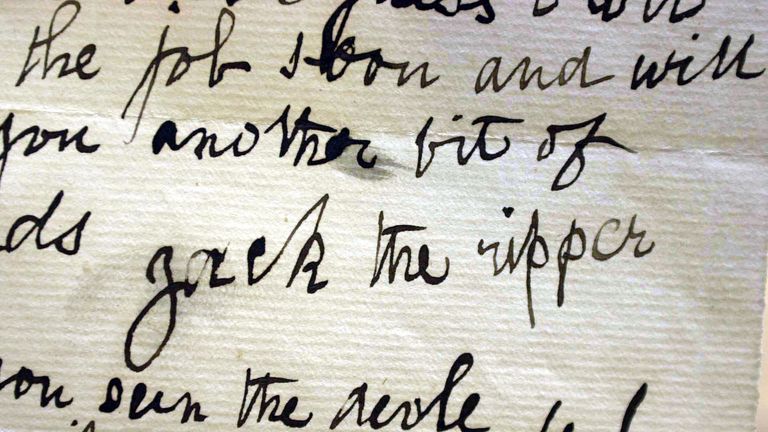 the job soon and will
you another bit of
ds Jack the ripper
you seen the devle